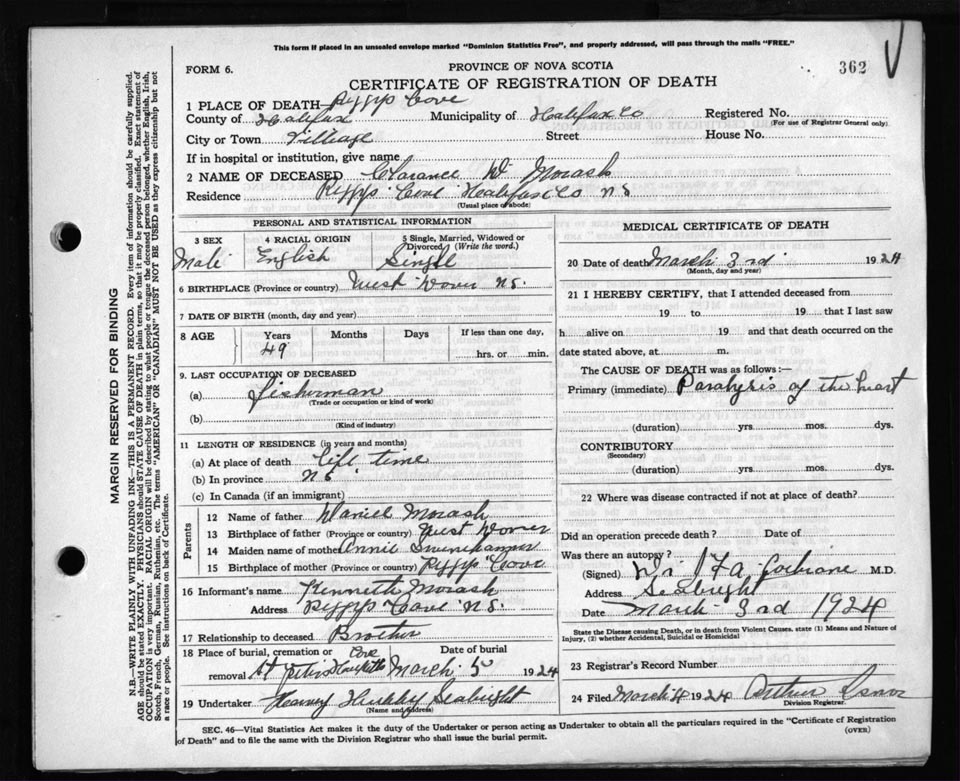 This form if placed in an unsealed envelope marked "Dominion Statistics Free", and properly addressed, will pass through the mails "FREE."
FORM 6.
PROVINCE OF NOVA SCOTIA
362
CERTIFICATE OF REGISTRATION OF DEATH
1 PLACE OF DEATH Peggys Cove
County of Halifax Municipality of Halifax Co Registered No.
(For use of Registrar General only)
City or Town Village Street House No.
If in hospital or institution, give name
2 NAME OF DECEASED Clarance W Morash
Residence Peggys Cove Halifax Co N S
(Usual place of abode)
PERSONAL AND STATISTICAL INFORMATION
3 SEX 4 RACIAL ORIGIN 5 Single, Married, Widowed or Divorced (Write the word).
Male English Single
6 BIRTHPLACE (Province or country) West Dover N S.
7 DATE OF BIRTH (month, day and year)
8 AGE Years Months Days If less than one day,
49 hrs. or min.
9. LAST OCCUPATION OF DECEASED
(a) fisherman
(Trade or occupation or kind of work)
(b)
(Kind of industry)
11 LENGTH OF RESIDENCE (in years and months)
(a) At place of death life time
(b) In province N S
(c) In Canada (if an immigrant)
Parents
12 Name of father Daniel Morash
13 Birthplace of father (Province or country) West Dover
14 Maiden name of mother Annie
15 Birthplace of mother (Province or country) Peggys Cove
16 Informant's name Kenneth Morash
Address Peggys Cove N S.
17 Relationship to deceased Brother
18 Place of burial, cremation or removal St Peters Cove
Date of burial March 5 1924
19 Undertaker Seabright
(Name and address)
MEDICAL CERTIFICATE OF DEATH
20 Date of death March 3rd 1924
(Month, day and year)
21 I HEREBY CERTIFY, that I attended deceased from
19 to 19 that I last saw
h alive on 19 and that death occurred on the
date stated above, at m.
The CAUSE OF DEATH was as follows:—
Primary (immediate) Paralysis of the heart
(duration) yrs. mos. dys.
CONTRIBUTORY
(Secondary)
(duration) yrs. mos. dys.
22 Where was disease contracted if not at place of death?
Did an operation precede death? Date of
Was there an autopsy?
(Signed) Dr Cochrane M.D.
Address Seabright
Date March 3rd 1924
State the Disease causing Death, or in death from Violent Causes, state (1) Means and Nature of Injury, (2) whether Accidental, Suicidal or Homicidal
23 Registrar's Record Number
24 Filed March 4 1924 Arthur
Division Registrar.
SEC. 46—Vital Statistics Act makes it the duty of the Undertaker or person acting as Undertaker to obtain all the particulars required in the "Certificate of Registration
of Death" and to file the same with the Division Registrar who shall issue the burial permit.
(OVER)
MARGIN RESERVED FOR BINDING
N.B.—WRITE PLAINLY WITH UNFADING INK—THIS IS A PERMANENT RECORD. Every item of information should be carefully supplied.
AGE should be stated EXACTLY. PHYSICIANS should STATE CAUSE OF DEATH in plain terms, so that it may be properly classified. Exact statement of
OCCUPATION is very important. RACIAL ORIGIN will be described by stating to what people or tongue the deceased person belonged, whether English, Irish,
Scotch, French, German, Russian, Ruthenian, etc. The terms "AMERICAN" OR "CANADIAN" MUST NOT BE USED as they express citizenship but not
a race or people. See instructions on back of Certificate.